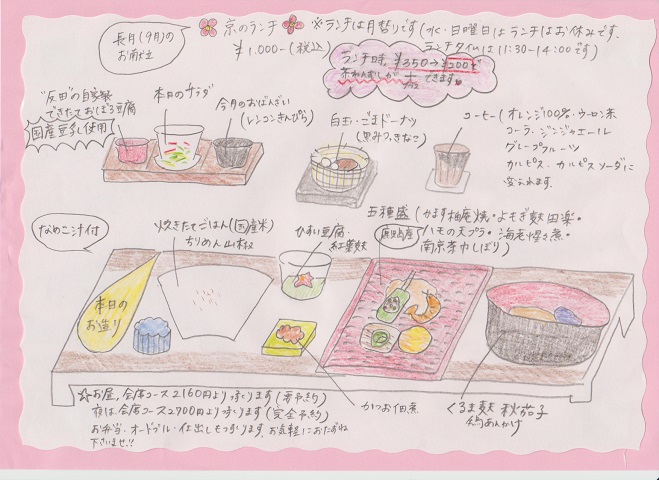 長月(9月)の
お献立
京のランチ
※ランチは月替りです(水・日曜日はランチはお休みです、
ランチタイムは11:30~14:00です)
¥1,000-(税込)
ランチ時、¥350→¥200で
茶わんむしが
できます。
できたておぼろ豆腐
国産豆乳使用
本日のサラダ
今月のおばんざい
(レンコンきんぴら)
白玉・ごまドーナツ
(黒みつきなこ)
コーヒー(オレンジ100%・ウーロン茶
コーラ・ジンジャエール
グレープフルーツ
カルピス・カルピスソーダに
変えられます。
なめこ汁付
炊きたてごはん(国産米)
ちりめん山椒
ひすい豆腐・
紅葉麩
五種盛(かます柚庵焼・よもぎ麩田楽・
いもの天プラ・海老煮・
南京茶巾しぼり)
本日の
お造り
☆お昼、会席コース2160円より承ります(要予約)
夜は、会席コース2700円より承ります(完全予約)
お弁当・オードブル・仕出しも承ります、お気軽におたずね
下さいませ!!
かつお佃煮
くるま麩 秋茄子
あんかけ